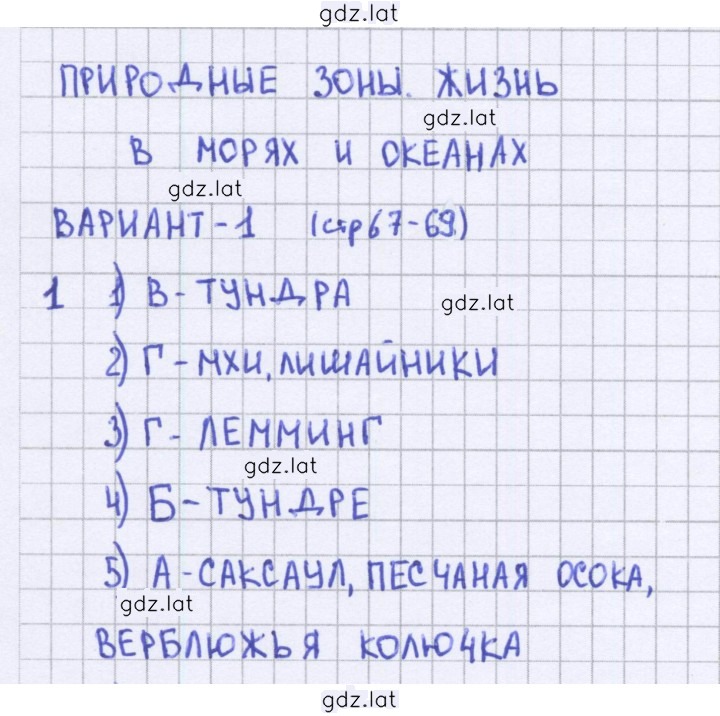 gdz.lat
ПРИРОДНЫЕ ЗОНЫ. ЖИЗНЬ
gdz.lat
В МОРЯХ И ОКЕАНАХ
gdz.lat
ВАРИАНТ-1 (стр67-69)
1 1) В-ТУНДРА
gdz.lat
2) Г-МХИ, ЛИШАЙНИКИ
3) Г-ЛЕММИНГ
gdz.lat
4) Б-ТУНДРЕ
5) А-САКСАУЛ, ПЕСЧАНАЯ ОСОКА,
gdz.lat
ВЕРБЛЮЖЬЯ КОЛЮЧКА
gdz.lat